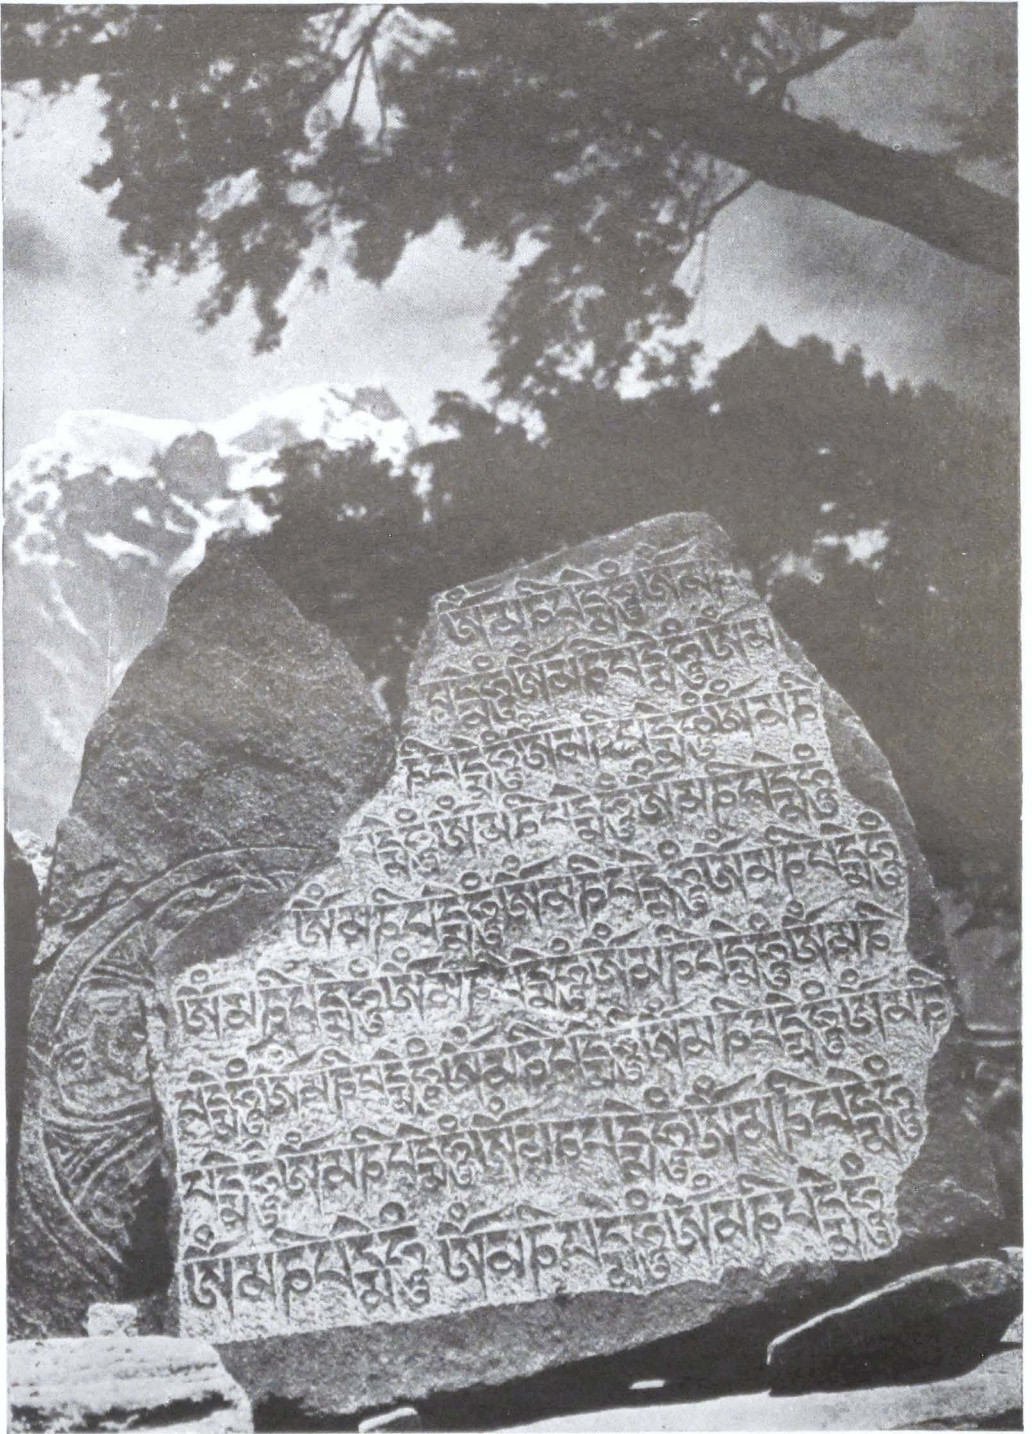 ཨོཾམཎིཔདྨེཧཱུྃཨོཾམཎི
པདྨེཧཱུྃཨོཾམཎིཔདྨེཧཱུྃཨོཾམཎི
པདྨེཧཱུྃཨོཾམཎིཔདྨེཧཱུྃཨོཾམཎི
པདྨེཧཱུྃཨོཾམཎིཔདྨེཧཱུྃཨོཾམཎིཔདྨེཧཱུྃ
ཨོཾམཎིཔདྨེཧཱུྃཨོཾམཎིཔདྨེཧཱུྃཨོཾམཎིཔདྨེཧཱུྃ
ཨོཾམཎིཔདྨེཧཱུྃཨོཾམཎིཔདྨེཧཱུྃཨོཾམཎིཔདྨེཧཱུྃཨོཾམཎི
པདྨེཧཱུྃཨོཾམཎིཔདྨེཧཱུྃཨོཾམཎིཔདྨེཧཱུྃཨོཾམཎིཔདྨེཧཱུྃཨོཾམཎི
པདྨེཧཱུྃཨོཾམཎིཔདྨེཧཱུྃཨོཾམཎིཔདྨེཧཱུྃཨོཾམཎིཔདྨེཧཱུྃ
ཨོཾམཎིཔདྨེཧཱུྃཨོཾམཎིཔདྨེཧཱུྃཨོཾམཎིཔདྨེཧཱུྃ